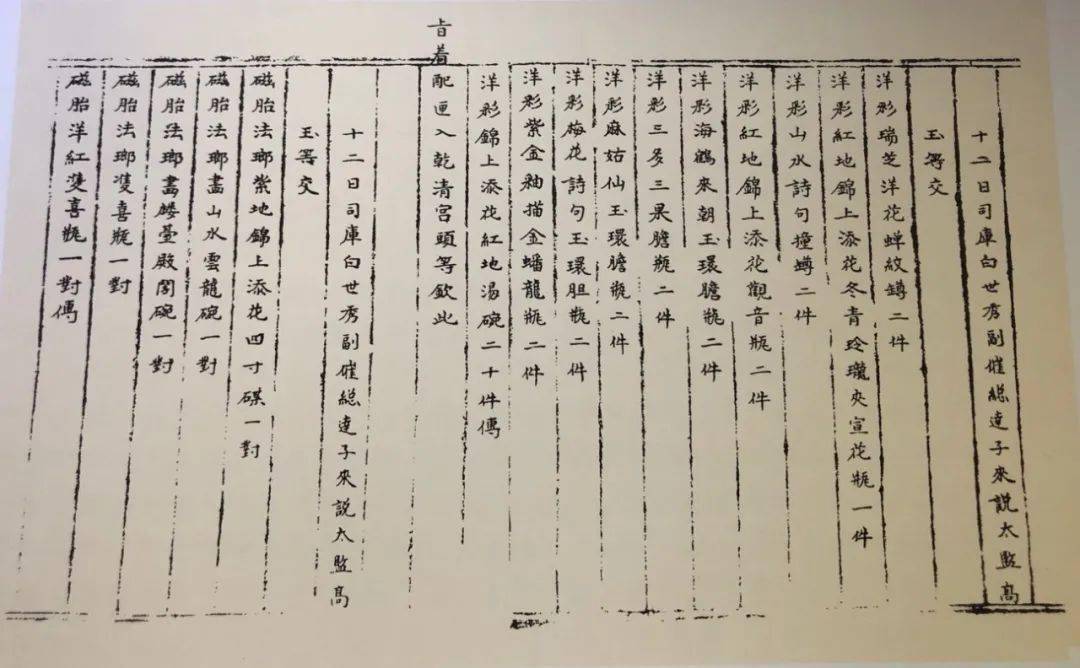 十二日司庫白世秀副催緫達子來說太監高
玉等交
洋彩瑞芝洋花蟬紋罇二件
洋彩紅地錦上添花冬青玲瓏夾宣花瓶一件
洋彩山水詩句撞罇二件
洋彩紅地錦上添花觀音瓶二件
洋彩海鶴來朝玉環膽瓶二件
洋彩三多三果膽瓶二件
洋彩麻姑仙玉環膽瓶二件
洋彩梅花詩句玉環胆瓶二件
洋彩紫金釉描金蟠龍瓶二件
洋彩錦上添花紅地湯碗二十件傳
旨着配匣入乾清宮頭等欽此
十二日司庫白世秀副催緫達子來說太監高
玉等交
磁胎法瑯紫地錦上添花四寸碟一對
磁胎法瑯畫山水雲龍碗一對
磁胎法瑯畫樓臺殿閣碗一對
磁胎法瑯雙喜瓶一對
磁胎洋紅雙喜瓶一對傳